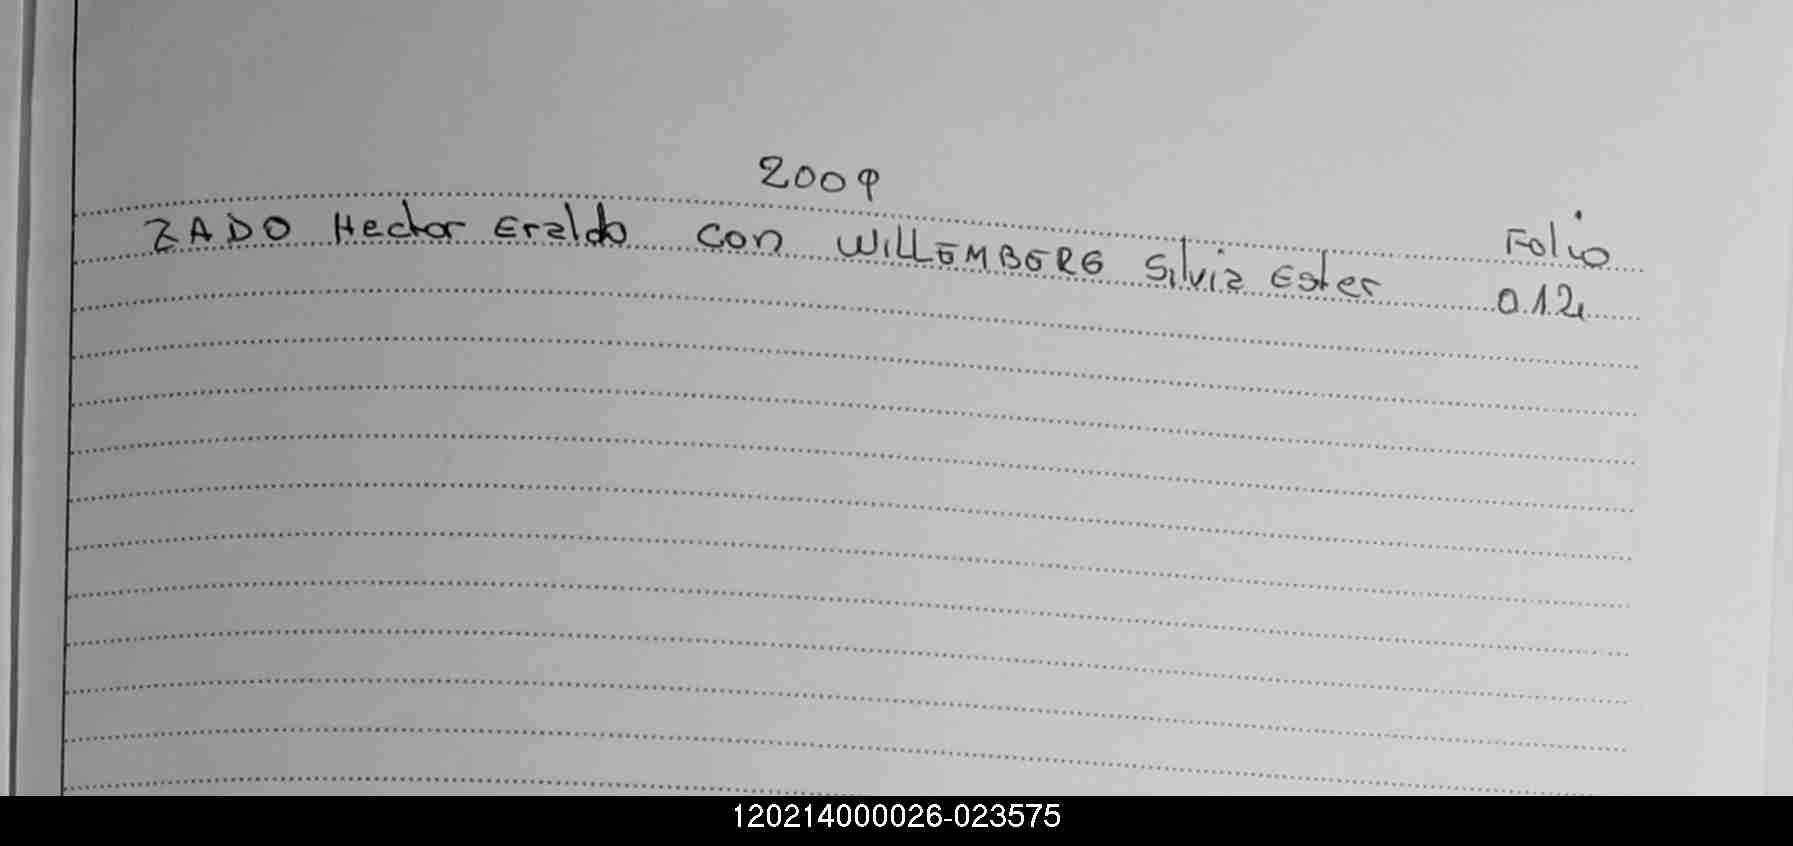 2009
Folio
ZADO Hector Eraldo con WILLEMBERG Silvia Ester 012
120214000026-023575